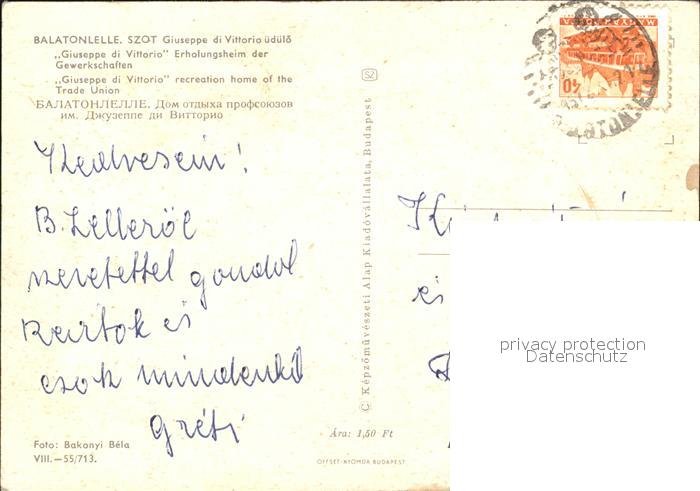 BALATONLELLE. SZOT Giuseppe di Vittorio üdülő
„Giuseppe di Vittorio" Erholungsheim der
Gewerkschaften
„Giuseppe di Vittorio" recreation home of the
Trade Union
БАЛАТОНЛЕЛЛЕ. Дом отдыха профсоюзов
им. Джузеппе ди Витторио
Kedveseim!
B. Lelleről
szeretettel gondol
Reátok és
csók mindenkit
Gréti
Foto: Bakonyi Béla
VIII.—55/713.
Ára: 1,50 Ft
OFFSET-NYOMDA BUDAPEST
© Képzőművészeti Alap Kiadóvállalata, Budapest
SZ
40
és
privacy protection
Datenschutz